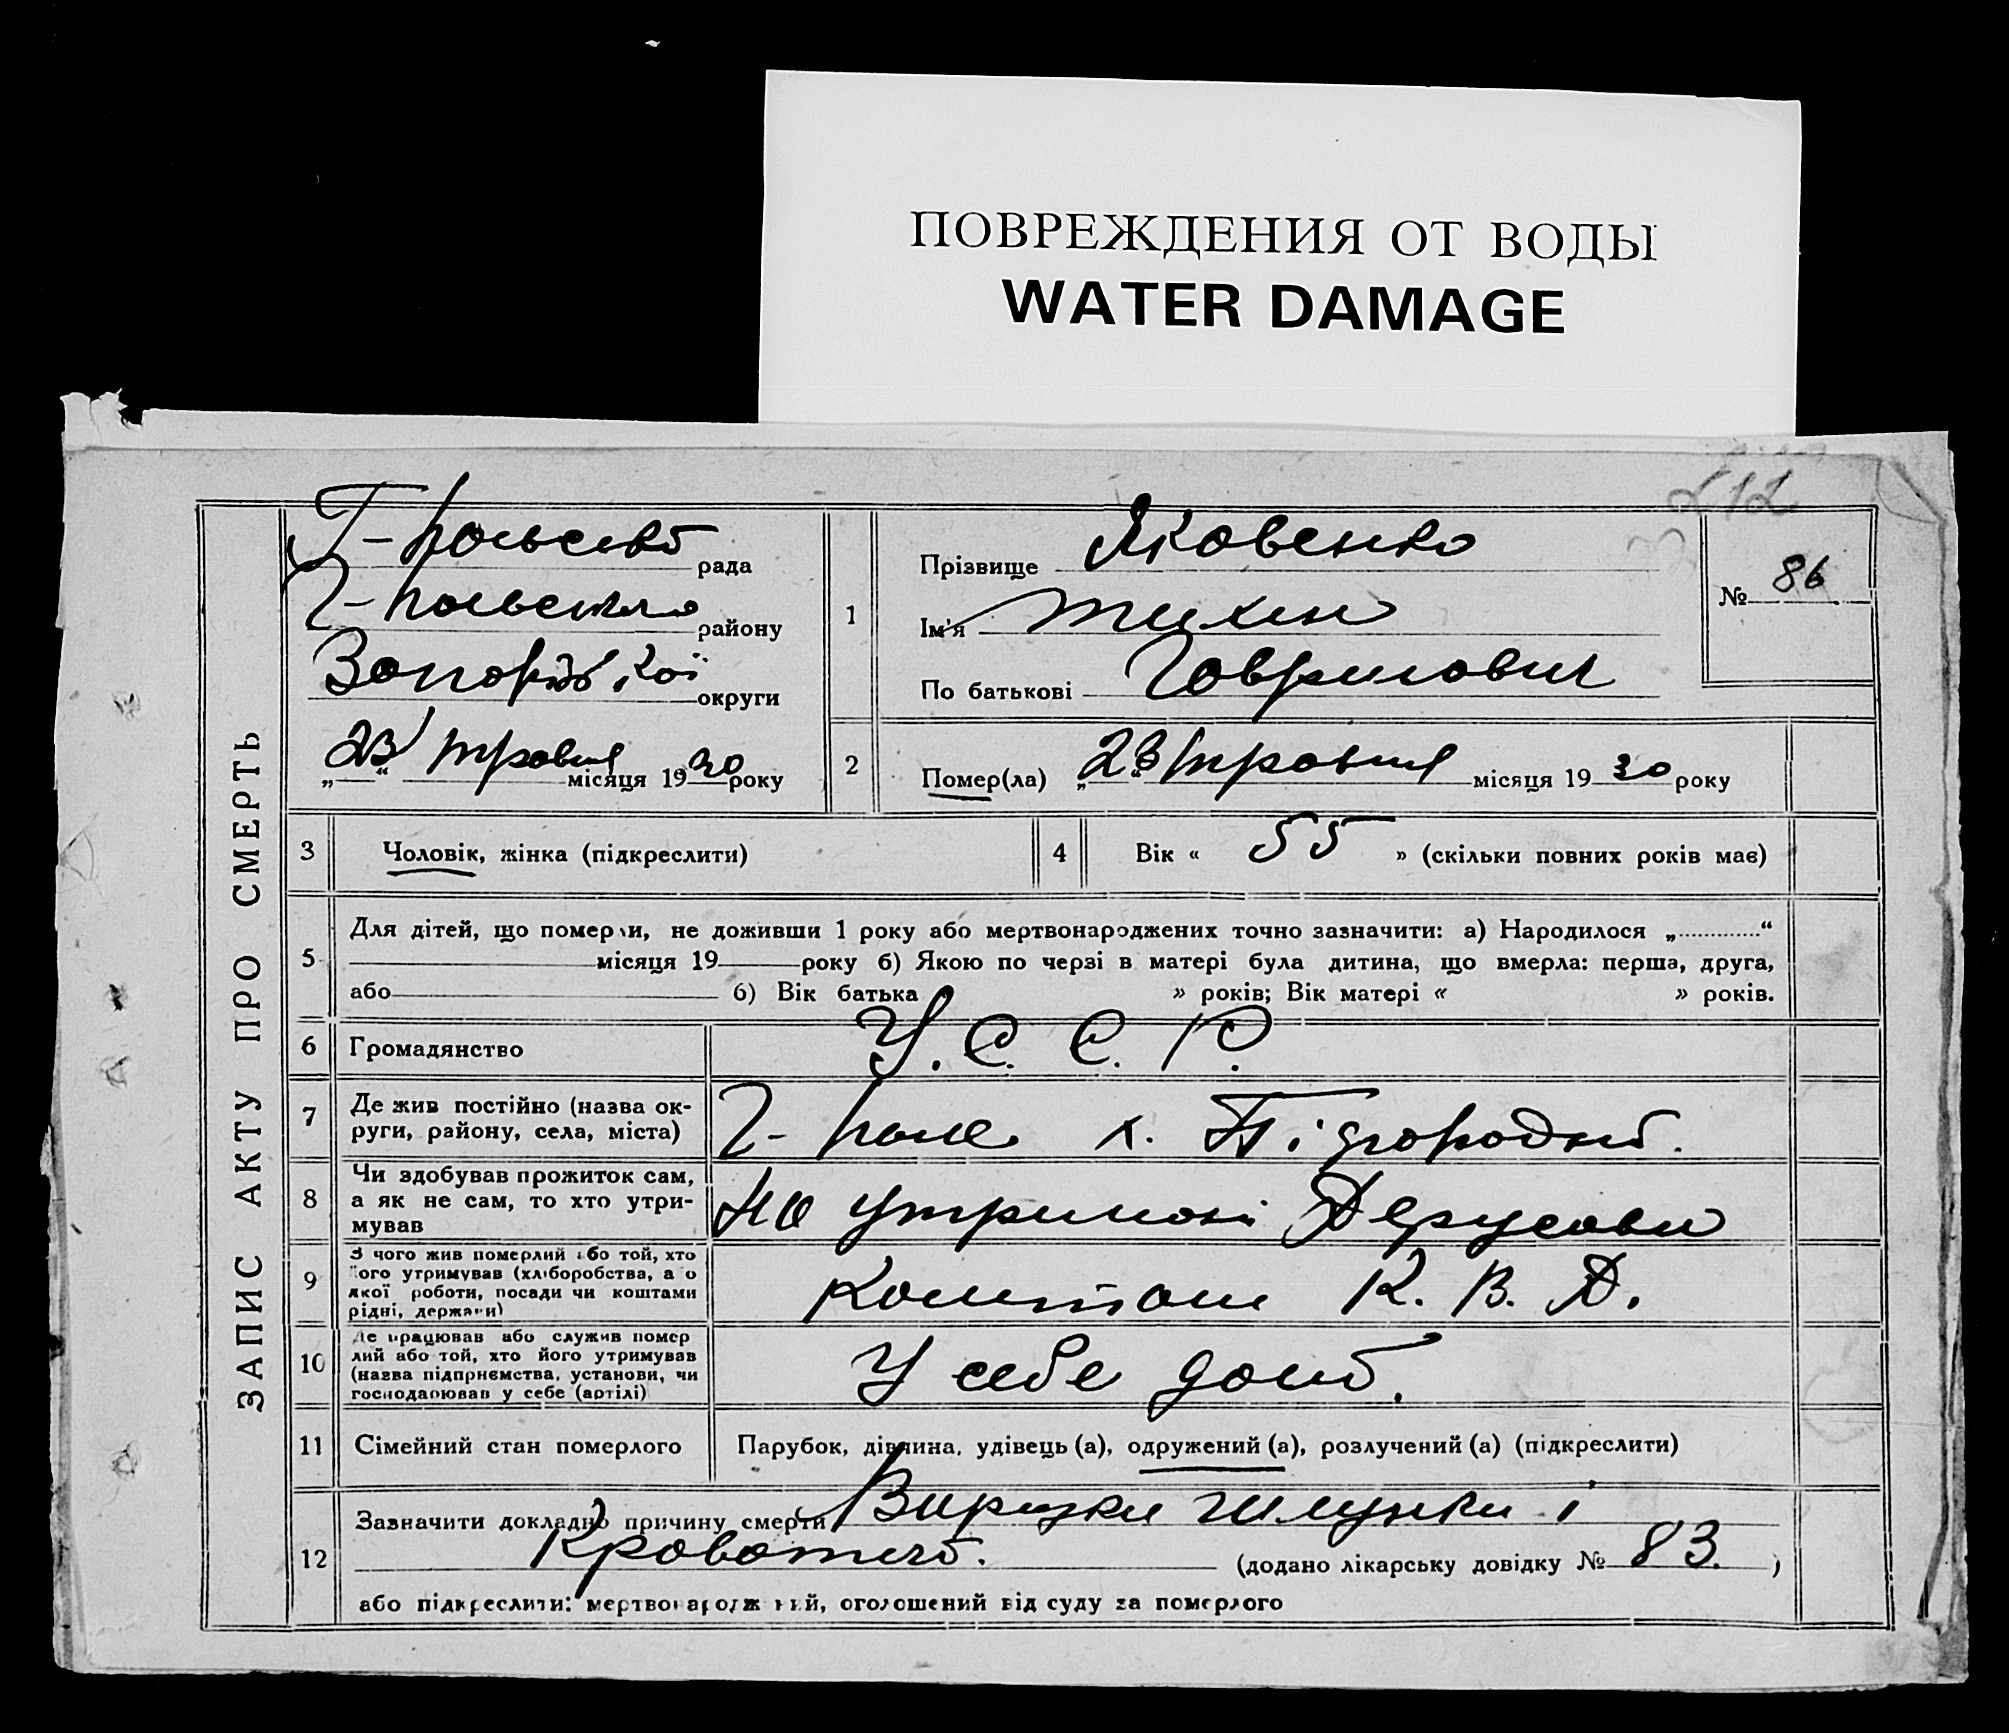 ПОВРЕЖДЕНИЯ ОТ ВОДЫ
WATER DAMAGE
212
ЗАПИС АКТУ ПРО СМЕРТЬ
рада
району
округи
„23“ травня місяця 1930 року
1
Прізвище Яковенко
Ім'я Тихон
По батькові Гаврилович
№ 86
2
Помер(ла) „23 травня місяця 1930 року
3
Чоловік, жінка (підкреслити)
4
Вік « 55 » (скільки повних років має)
5
Для дітей, що померли, не доживши 1 року або мертвонароджених точно зазначити: а) Народилося „ “
місяця 19 року б) Якою по черзі в матері була дитина, що вмерла: перша, друга,
або б) Вік батька » років; Вік матері « » років.
6
Громадянство
У.С.С.Р.
7
Де жив постійно (назва ок-
руги, району, села, міста)
Г-Поле х.
8
Чи здобував прожиток сам,
а як не сам, то хто утри-
мував
На утриманні
9
З чого жив померлий або той, хто
його утримував (хліборобства, або
якої роботи, посади чи коштами
рідні, держави)
Коштом К.В.Д.
10
Де працював або служив помер
лий або той, хто його утримував
(назва підприємства, установи, чи
господарював у себе (артілі)
У себе дома.
11
Сімейний стан померлого
Парубок, дівчина, удівець (а), одружений (а), розлучений (а) (підкреслити)
12
Зазначити докладно причину смерти Виразки шлунку і
(додано лікарську довідку № 83. )
або підкреслити: мертвонароджений, оголошений від суду за померлого